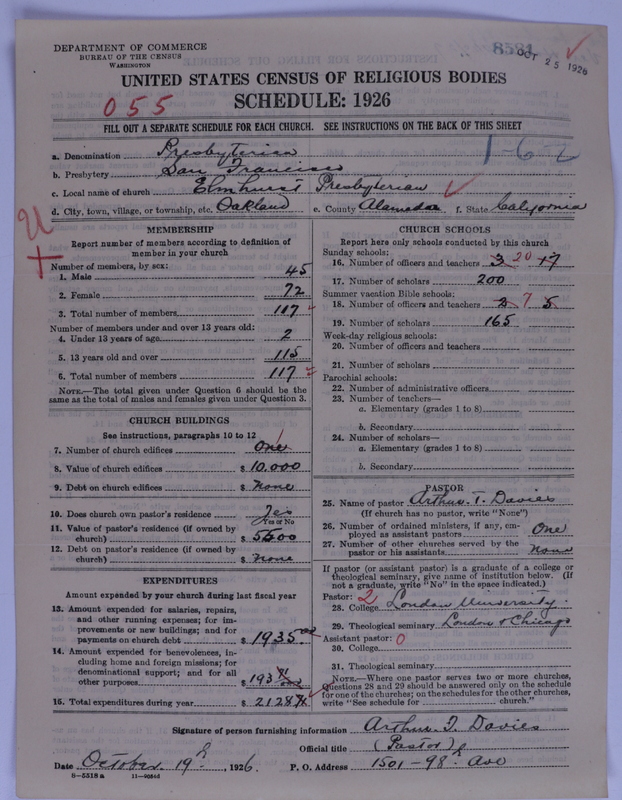 DEPARTMENT OF COMMERCE
BUREAU OF THE CENSUS
WASHINGTON
8584
OCT 25 1926
UNITED STATES CENSUS OF RELIGIOUS BODIES
SCHEDULE: 1926
055
FILL OUT A SEPARATE SCHEDULE FOR EACH CHURCH. SEE INSTRUCTIONS ON THE BACK OF THIS SHEET
a. Denomination Presbyterian
1-6-2
b. Presbytery San Francisco
c. Local name of church Elmhurst Presbyterian
d. City, town, village, or township, etc. Oakland e. County Alameda f. State California
MEMBERSHIP
Report number of members according to definition of
member in your church
Number of members, by sex:
1. Male 45
2. Female 72
3. Total number of members 117
Number of members under and over 13 years old:
4. Under 13 years of age 2
5. 13 years old and over 115
6. Total number of members 117
NOTE.—The total given under Question 6 should be the
same as the total of males and females given under Question 3.
CHURCH BUILDINGS
See instructions, paragraphs 10 to 12
7. Number of church edifices One
8. Value of church edifices $ 10,000
9. Debt on church edifices $ None
10. Does church own pastor's residence Yes
Yes or No
11. Value of pastor's residence (if owned by
church) $ 5500
12. Debt on pastor's residence (if owned by
church) $ None
EXPENDITURES
Amount expended by your church during last fiscal year
13. Amount expended for salaries, repairs,
and other running expenses; for im-
provements or new buildings; and for
payments on church debt $ 1935.00
14. Amount expended for benevolences, in-
cluding home and foreign missions; for
denominational support; and for all
other purposes $ 193
15. Total expenditures during year $ 2128
CHURCH SCHOOLS
Report here only schools conducted by this church
Sunday schools:
16. Number of officers and teachers 3 20 17
17. Number of scholars 200
Summer vacation Bible schools:
18. Number of officers and teachers 2 7 5
19. Number of scholars 165
Week-day religious schools:
20. Number of officers and teachers
21. Number of scholars
Parochial schools:
22. Number of administrative officers
23. Number of teachers—
a. Elementary (grades 1 to 8)
b. Secondary
24. Number of scholars—
a. Elementary (grades 1 to 8)
b. Secondary
PASTOR
25. Name of pastor Arthur T. Davies
(If church has no pastor, write "None")
26. Number of ordained ministers, if any, em-
ployed as assistant pastors One
27. Number of other churches served by the
pastor or his assistants None
If pastor (or assistant pastor) is a graduate of a college or
theological seminary, give name of institution below. (If
not a graduate, write "No" in the space indicated.)
Pastor: 2
28. College London University
29. Theological seminary London & Chicago
Assistant pastor: 0
30. College
31. Theological seminary
NOTE.—Where one pastor serves two or more churches,
Questions 28 and 29 should be answered only on the schedule
for one of the churches; on the schedules for the other churches,
write "See schedule for church."
Signature of person furnishing information Arthur T. Davies
Official title (Pastor)
Date October 19th, 1926. P. O. Address 1501-98th Ave
8-5518a 11-9054d